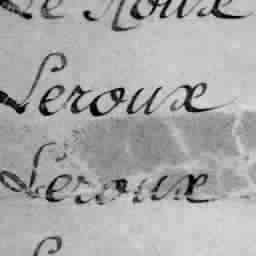 Le Roux
Leroux
Leroux